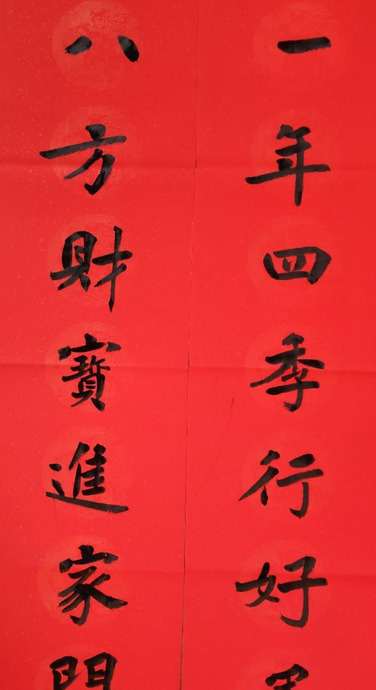 一年四季行好
八方財寶進家門